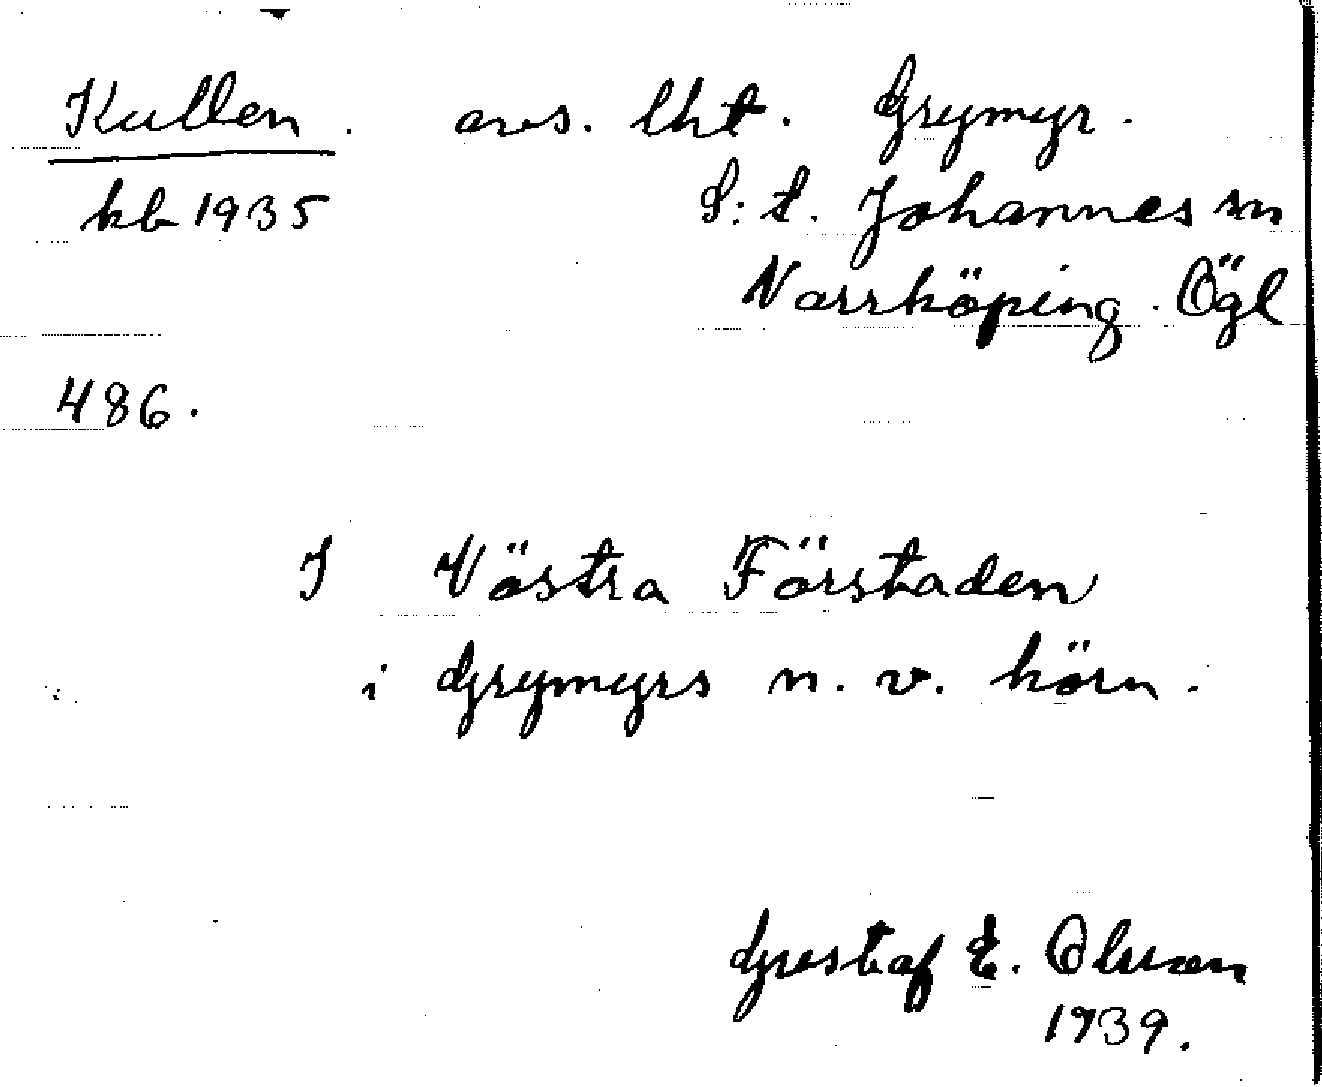 Kullen. avs. lht. Grymyr.
kb 1935 S:t. Johannes sn
Norrköping. Ögl
486.
I Västra Förstaden
i Grymyrs n. v. hörn.
Gustaf E. Olsson
1939.